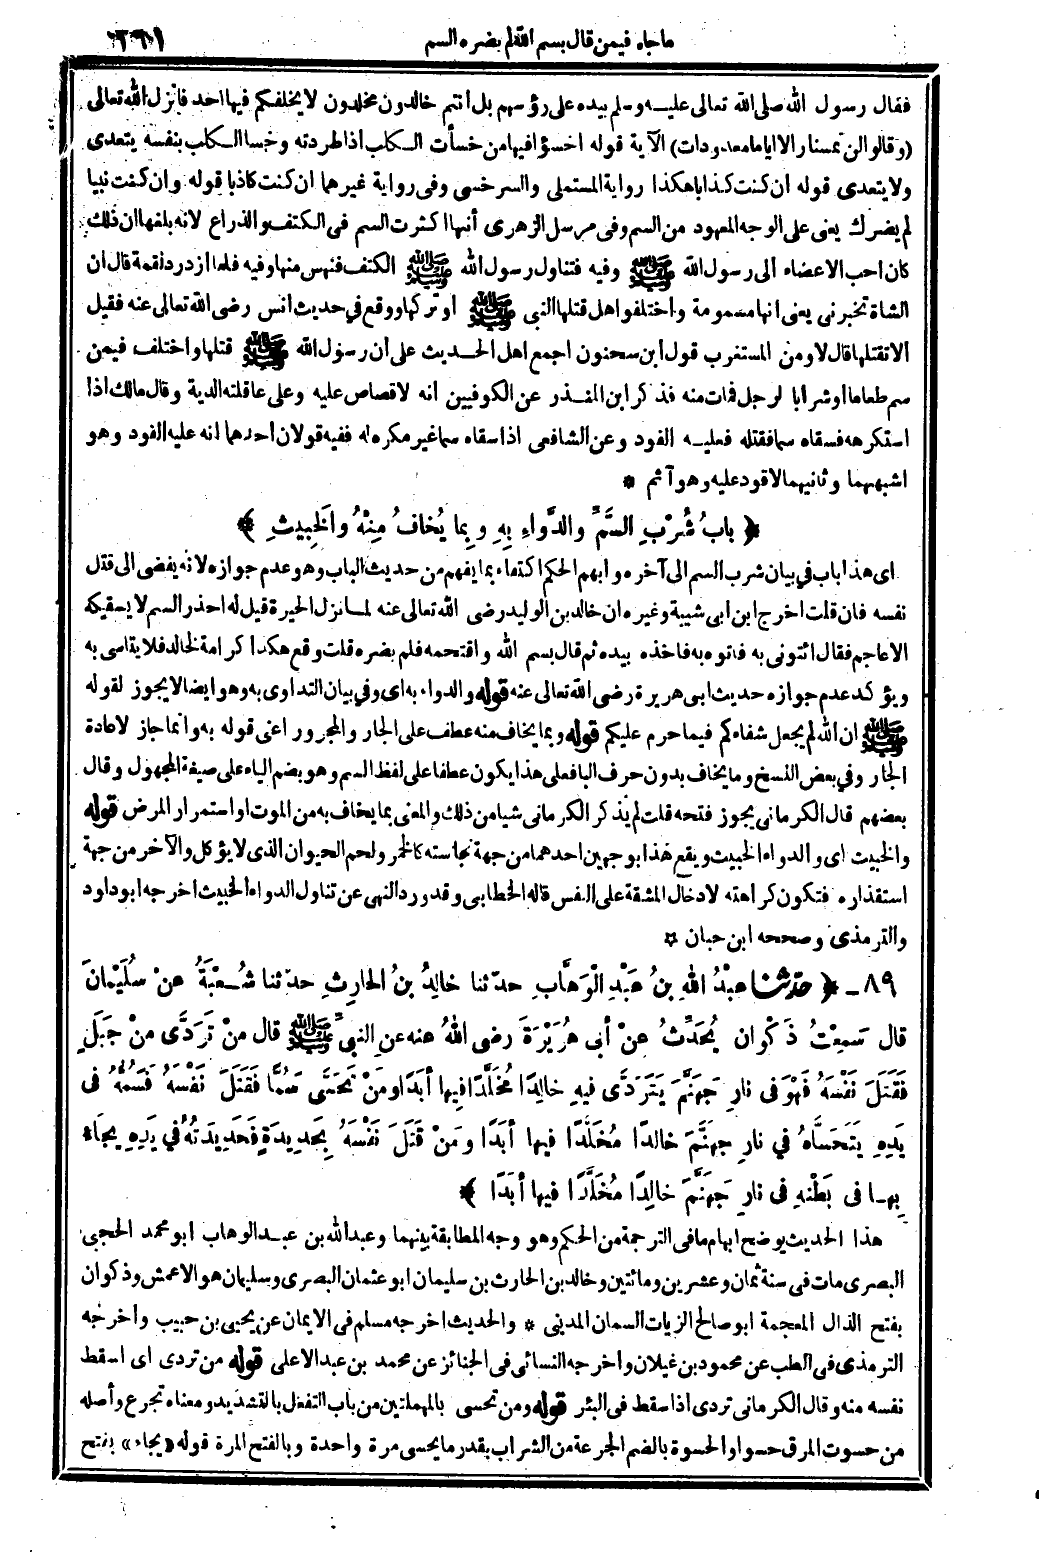 ماجاء فيمن قال بسم الله لم يضره السم
فقال رسول الله صلى الله تعالى عليه وسلم بيده على رؤسهم بل أنتم خالدون مخلدون لا يخلفكم فيها احد فانزل الله تعالى
(وقالوا لن تمسنا النار الا اياما معدودات) الآية قوله اخسؤا فيها من خسأت الكلب اذا طردته وخسا الكلب بنفسه يتعدى
ولا يتعدى قوله ان كنت كذابا هكذا رواية المستملى والسرخسى وفى رواية غيرهما ان كنت كاذبا قوله وان كنت نبيا
لم يضرك يعنى على الوجه المعهود من السم وفى مرسل الزهرى أنها اكثرت السم فى الكتف والذراع لانه بلغها ان ذلك
كان احب الاعضاء الى رسول الله ﷺ وفيه فتناول رسول الله ﷺ الكتف فنهس منها وفيه فلما ازدرد لقمة قال ان
الشاة تخبرنى يعنى انها مسمومة واختلفوا هل قتلها النبى ﷺ او تركها ووقع في حديث انس رضى الله تعالى عنه فقيل
الا تقتلها قال لا ومن المستغرب قول ابن سحنون اجمع اهل الحديث على أن رسول الله ﷺ قتلها واختلف فيمن
سم طعاما أو شرابا لرجل فمات منه فذكر ابن المنذر عن الكوفيين انه لا قصاص عليه وعلى عاقلته الدية وقال مالك اذا
استكرهه فسقاه سما فقتله فعليه القود وعن الشافعى اذا سقاه سما غير مكره له ففيه قولان احدهما انه عليه القود وهو
اشبههما وثانيهما لا قود عليه وهو آثم *
﴿ بابُ شُرْبِ السَّمِّ والدَّواءِ بِهِ وبِما يُخافُ مِنْهُ والخَبِيثِ ﴾
اى هذا باب فى بيان شرب السم الى آخره وابهم الحكم اكتفاء بما يفهم من حديث الباب وهو عدم جوازه لانه يفضى الى قتل
نفسه فان قلت اخرج ابن ابى شيبة وغيره ان خالد بن الوليد رضى الله تعالى عنه لما نزل الحيرة قيل له احذر السم لا يسقيكه
الاعاجم فقال ائتونى به فاتوه به فاخذه بيده ثم قال بسم الله واقتحمه فلم يضره قلت وقع هكذا كرامة لخالد فلا يتاسى به
ويؤكد عدم جوازه حديث ابى هريرة رضى الله تعالى عنه قوله والدواء به اى وفي بيان التداوى به وهو ايضا لا يجوز لقوله
ﷺ ان الله لم يجعل شفاءكم فيما حرم عليكم قوله وبما يخاف منه عطف على الجار والمجرور اعنى قوله به وانما جاز لاعادة
الجار وفي بعض النسخ وما يخاف بدون حرف الباء فعلى هذا يكون عطفا على لفظ السم وهو بضم الياء على صيغة المجهول وقال
بعضهم قال الكرمانى يجوز فتحه قلت لم يذكر الكرمانى شيا من ذلك والمعنى بما يخاف به من الموت او استمرار المرض قوله
والخبيث اى والدواء الخبيث ويقع هذا بوجهين احدهما من جهة نجاسته كالخمر ولحم الحيوان الذى لا يؤكل والآخر من جهة
استقذاره فتكون كراهته لادخال المشقة على النفس قاله الخطابى وقد ورد النهى عن تناول الدواء الخبيث اخرجه ابو داود
والترمذى وصححه ابن حبان *
٨٩ - ﴿ حَدَّثَنَا عبْدُ اللهِ بنُ عَبْدِ الْوَهَّابِ حدّثنا خالِدُ بنُ الحارِثِ حدّثنا شُعْبَةُ عنْ سُلَيْمانَ
قال سَمِعْتُ ذَكْوان يُحَدِّثُ عنْ أبى هُرَيْرَةَ رضى اللهُ عنه عنِ النبيّ ﷺ قال منْ تَرَدَّى منْ جَبَلٍ
فَقَتَلَ نَفْسَهُ فَهْوَ فى نارِ جَهَنَّمَ يَتَرَدَّى فيهِ خالِدًا مُخَلَّدًا فِيها أبَدًا ومَنْ تَحَسَّى سَمًّا فَقَتَلَ نَفْسَهُ فَسَمُّهُ فى
يَدِهِ يَتَحَسَّاهُ في نارِ جهَنَّمَ خالدًا مُخَلَّدًا فيها أبَدًا ومَنْ قَتَلَ نَفْسَهُ بِحَدِيدَةٍ فَحَدِيدَتُهُ في يَدِهِ يَجَاءُ
بِهـا فى بَطْنِهِ فى نارِ جَهَنَّمَ خالِدًا مُخَلَّدًا فيها أبَدًا ﴾
هذا الحديث يوضح ابهام ما فى الترجمة من الحكم وهو وجه المطابقة بينهما وعبد الله بن عبد الوهاب ابو محمد الحجبى
البصرى مات فى سنة ثمان وعشرين ومائتين وخالد بن الحارث بن سليمان ابو عثمان البصرى وسليمان هو الاعمش وذكوان
بفتح الذال المعجمة ابو صالح الزيات السمان المدينى * والحديث اخرجه مسلم فى الايمان عن يحيى بن حبيب وأخرجه
الترمذى فى الطب عن محمود بن غيلان واخرجه النسائى فى الجنائز عن محمد بن عبد الاعلى قوله من تردى اى اسقط
نفسه منه وقال الكرمانى تردى اذا سقط فى البئر قوله ومن تحسى بالمهملتين من باب التفعل بالتشديد ومعناه تجرع وأصله
من حسوت المرق حسوا والحسوة بالضم الجرعة من الشراب بقدر ما يحسى مرة واحدة وبالفتح المرة قوله «يجاء» بفتح